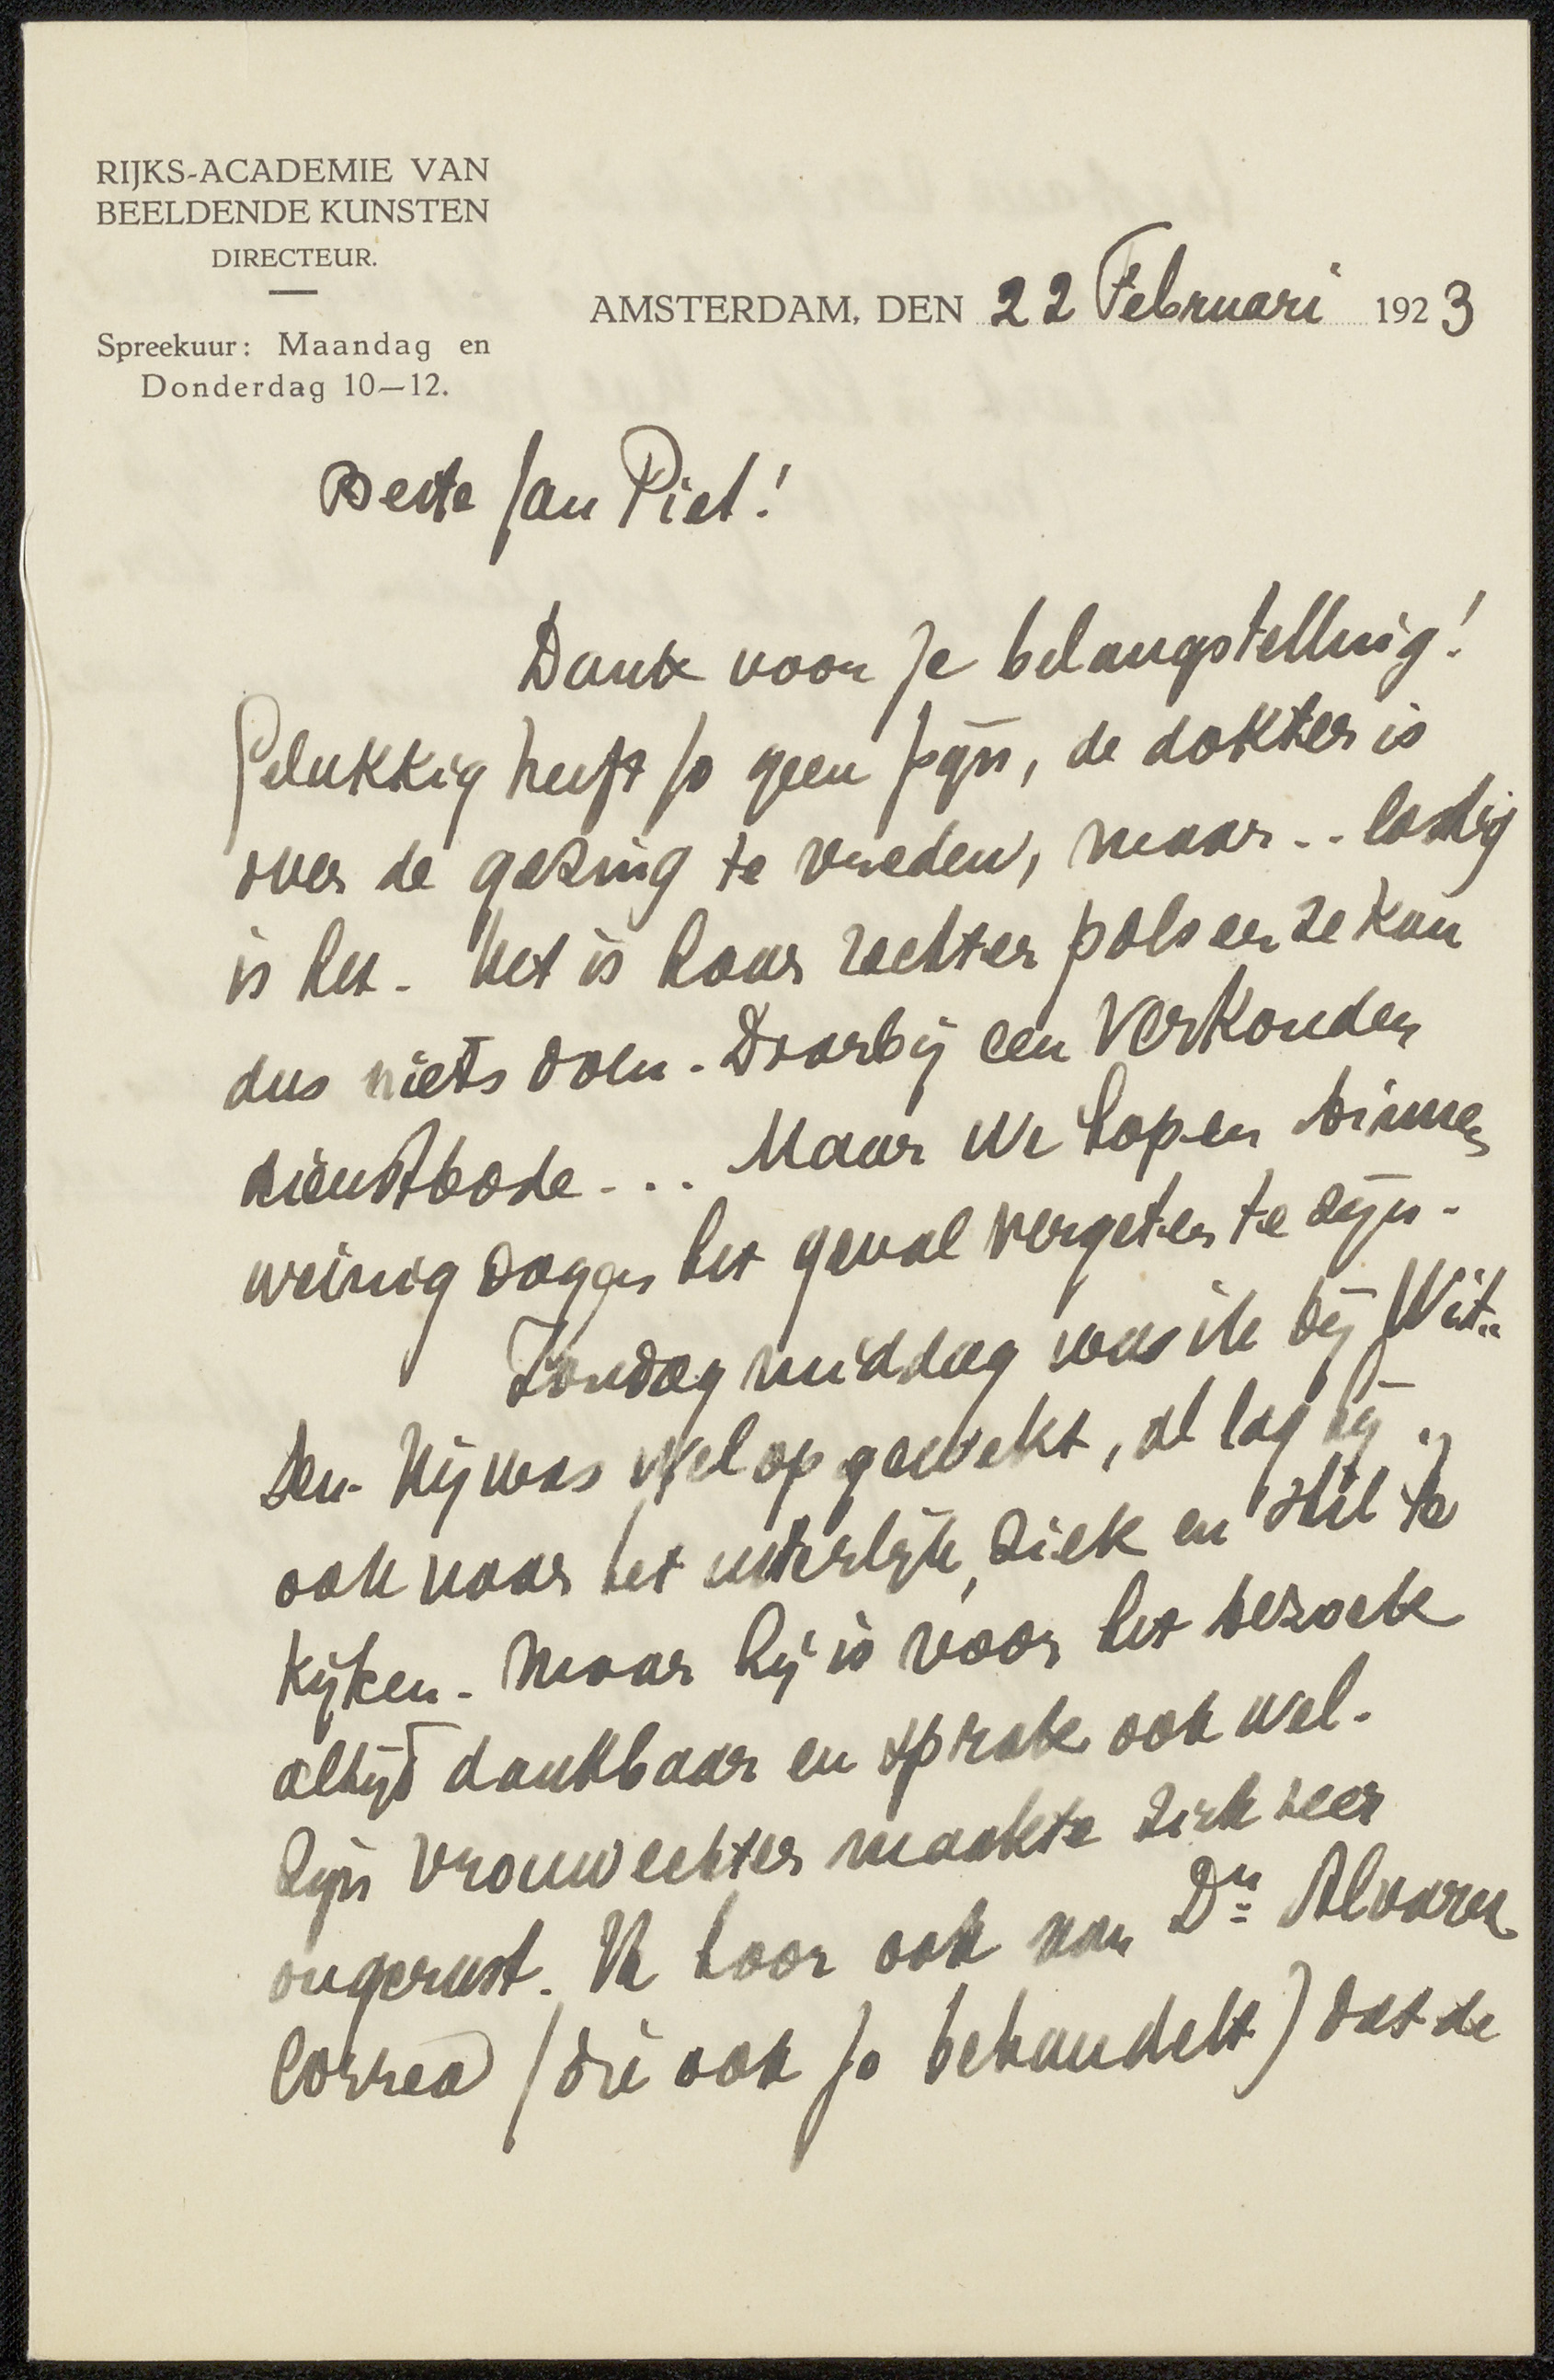 RIJKS-ACADEMIE VAN
BEELDENDE KUNSTEN
DIRECTEUR.
Spreekuur: Maandag en
Donderdag 10—12.
AMSTERDAM, DEN 22 Februari 1923
Beste Jan Piet!
Dank voor je belangstelling!
Gelukkig heeft Jo geen pijn, de dokter is
over de gezing te vreden, maar .. lastig
is het. Het is haar rechter pols en ze kan
dus niets doen. Daarbij een verkouden
dienstbode ... Maar we hopen binnen
weinig dagen het geval vergeten te zijn.
Zondag middag was ik bij Wit-
sen. Hij was wel opgewekt, al lag hij
ook naar het uiterlijk, ziek en stil te
kijken. Maar hij is voor het bezoek
altijd dankbaar en sprak ook wel.
Zijn vrouw echter maakte zich zeer
ongerust. Ik hoor ook van Dr. Alvares
Correa (die ook Jo behandelt) dat de